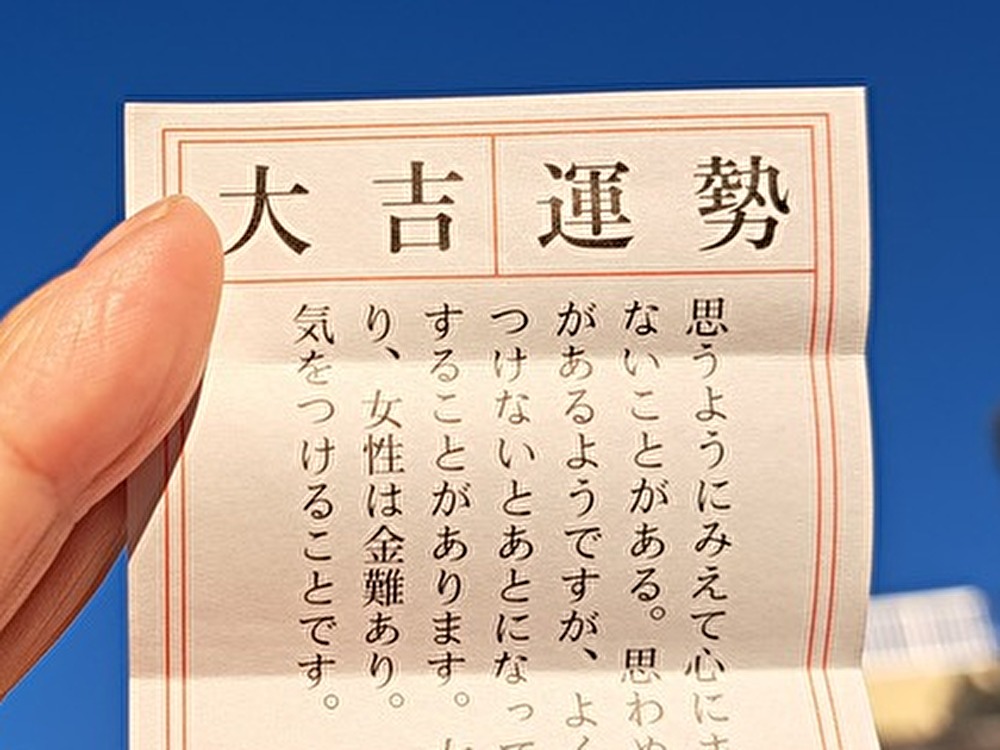 大吉 運勢
思うようにみえて心に
ないことがある。思わ
があるようですが、よ
つけないとあとになっ
することがあります。
り、女性は金難あり。
気をつけることです。